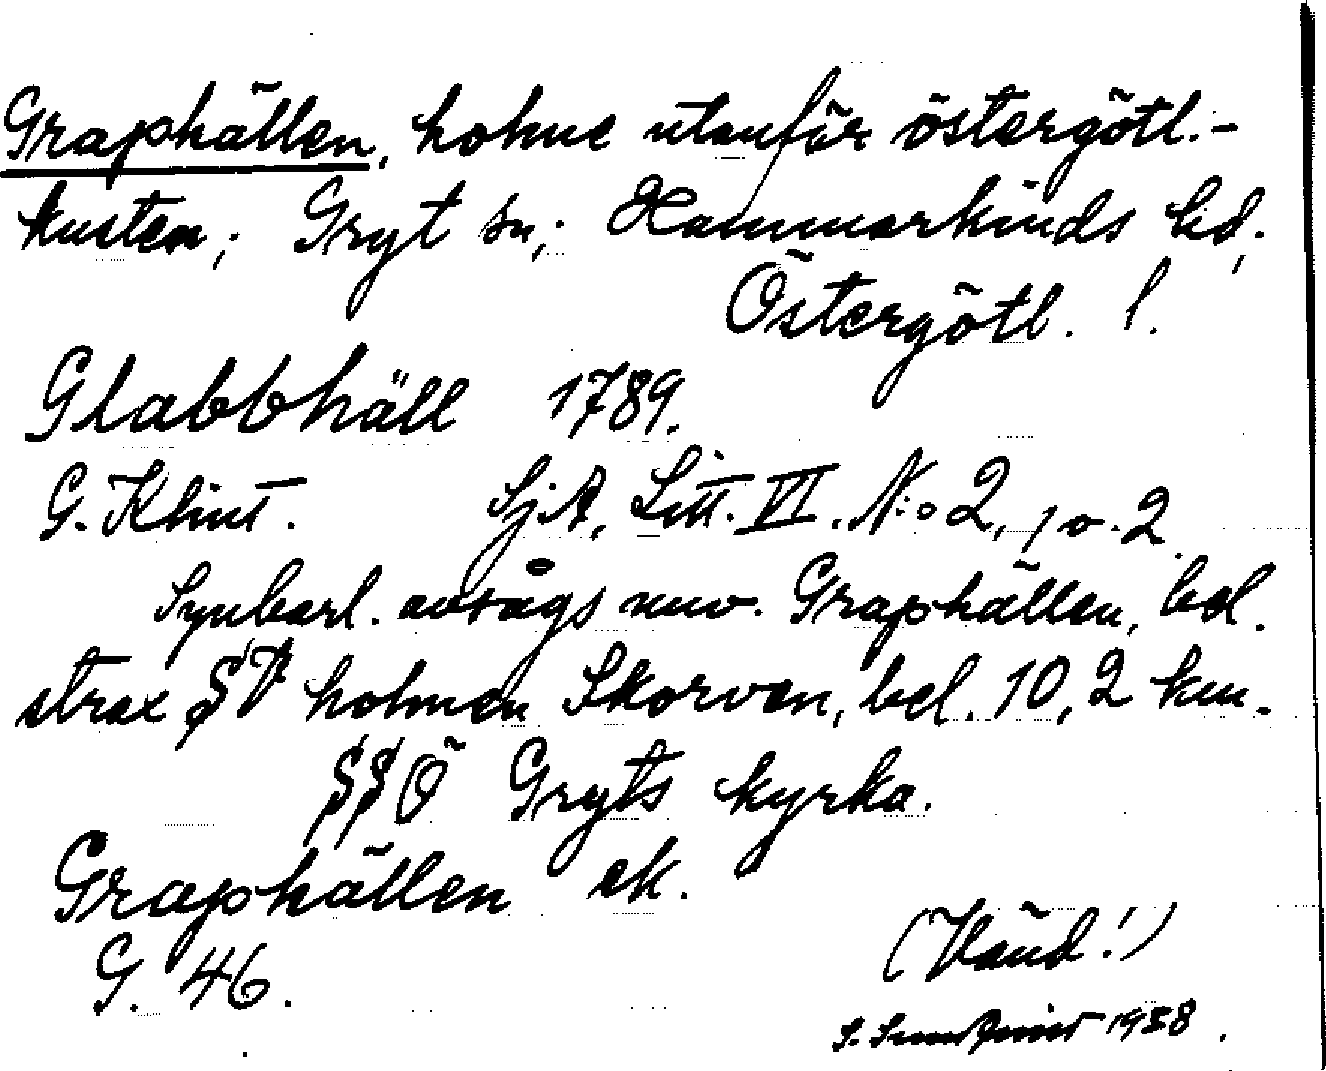 Graphällen, holme utanför östergötl.-
kusten; Gryt sn; Hammarkinds hd,
Östergötl. l.
Glabbhäll 1789.
G. Klint. SjA, Litt. VI. N:o 2, p. 2.
Synbarl. avsågs nuv. Graphällen, bel.
strax SV holmen Skorven, bel. 10,2 km.
SSÖ Gryts kyrka.
Graphällen ek.
G. 46.
(Vänd!)
S. 1938.